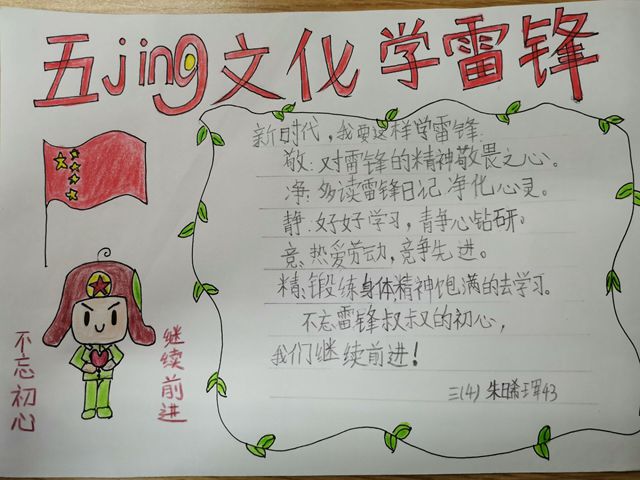 五jing文化学雷锋
新时代，我要这样学雷锋:
敬:对雷锋的精神敬畏之心。
净:多读雷锋日记 净化心灵。
静:好好学习，静心钻研。
竞:热爱劳动，竞争先进。
精:锻练身体精神饱满的去学习。
不忘雷锋叔叔的初心，
我们继续前进！
三(4) 朱
43
不忘初心
继续前进